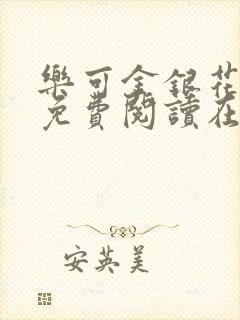 樂可金銀花
免費閱讀在
安英美